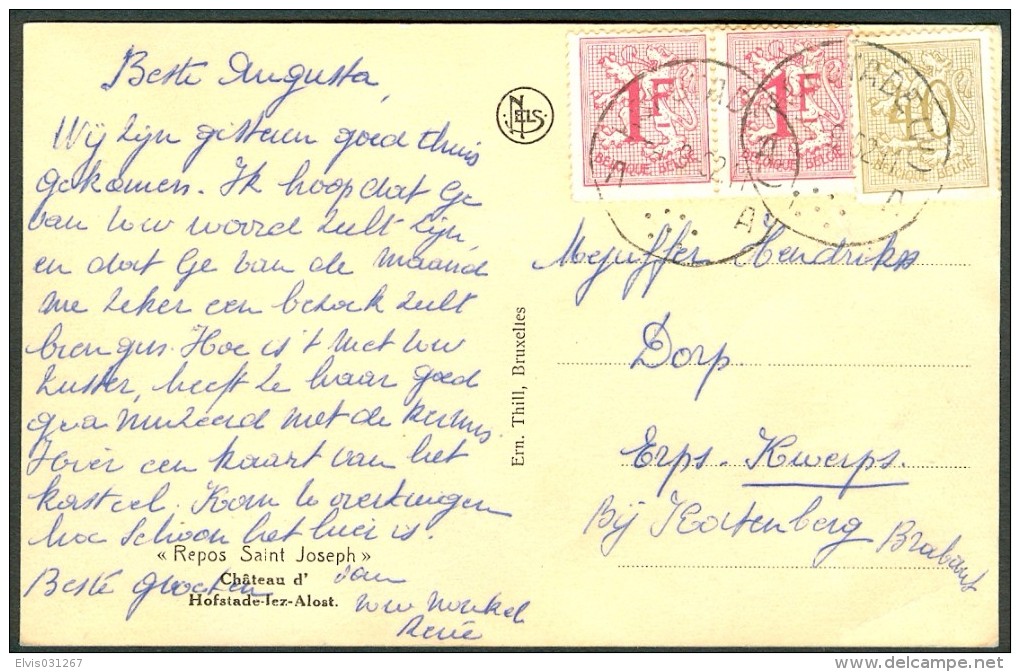 Beste Augusta,
Wij zijn gisteren goed thuis
gekomen. Ik hoop dat Ge
van uw woord zult zijn,
en dat Ge van de maand
me zeker een bezoek zult
brengen. Hoe is 't met uw
zuster, heeft ze haar goed
geamuzeerd met de kermis.
Hier een kaart van het
kasteel. Kom te overtuigen
hoe schoon het hier is.
« Repos Saint Joseph »
Château d'
Hofstade-lez-Alost.
Beste groeten van
uw
René
NELS
Ern. Thill, Bruxelles
1F
BELGIQUE BELGIE
1F
BELGIQUE BELGIE
40
BELGIQUE BELGIE
Mejuffer Hendrikx
Dorp
Erps-Kwerps.
Bij Kortenberg
Brabant
Elvis031267
delcampe.net